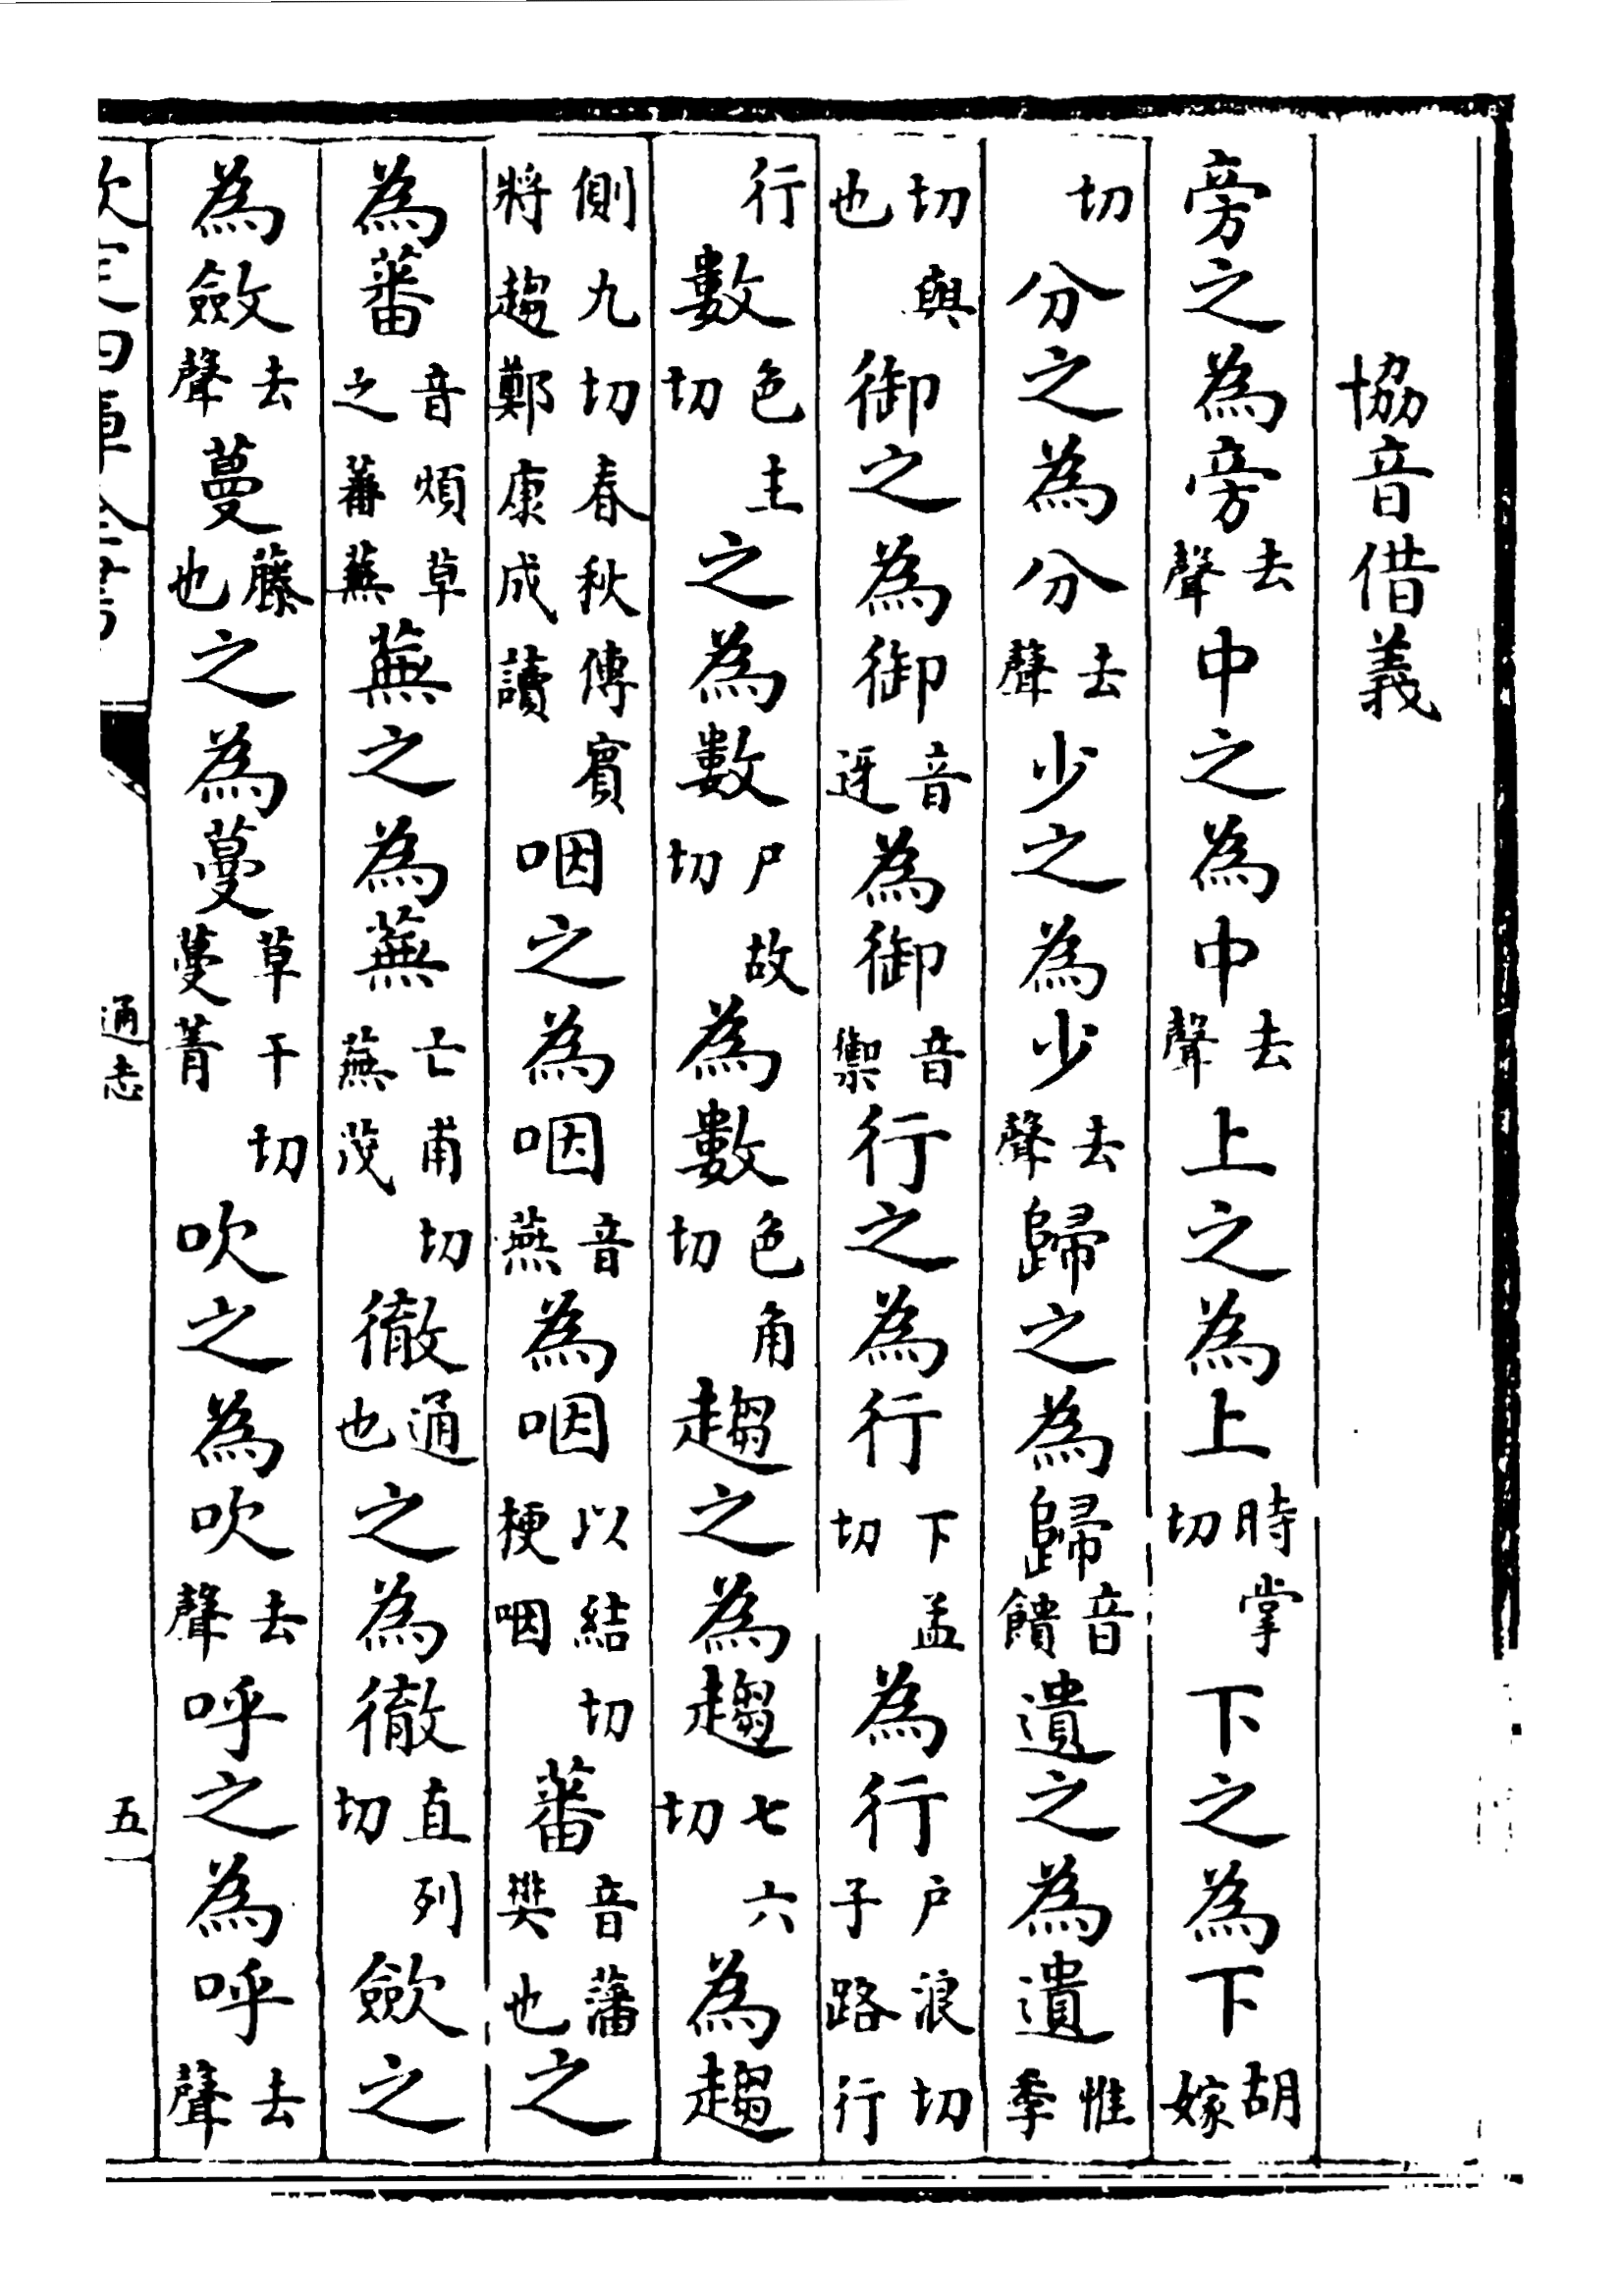 協音借義
旁之為旁去聲中之為中去聲上之為上時掌切下之為下胡嫁
切分之為分去聲少之為少去聲歸之為歸音饋遺之為遺惟季
切與也御之為御音迓為御音禦行之為行下孟切為行户浪切子路行
行數色主切之為數尸故切為數色角切趨之為趨七六切為趨
側九切春秋傳賓將趨鄭康成讀咽之為咽音燕為咽以結切梗咽蕃音藩樊也之
為蕃音煩草之蕃蕪蕪之為蕪亡甫切蕪没徹通也之為徹直列切歛之
為斂去聲蔓藤也之為蔓草干切蔓菁吹之為吹去聲呼之為呼去聲
欽定四庫全書
通志
五